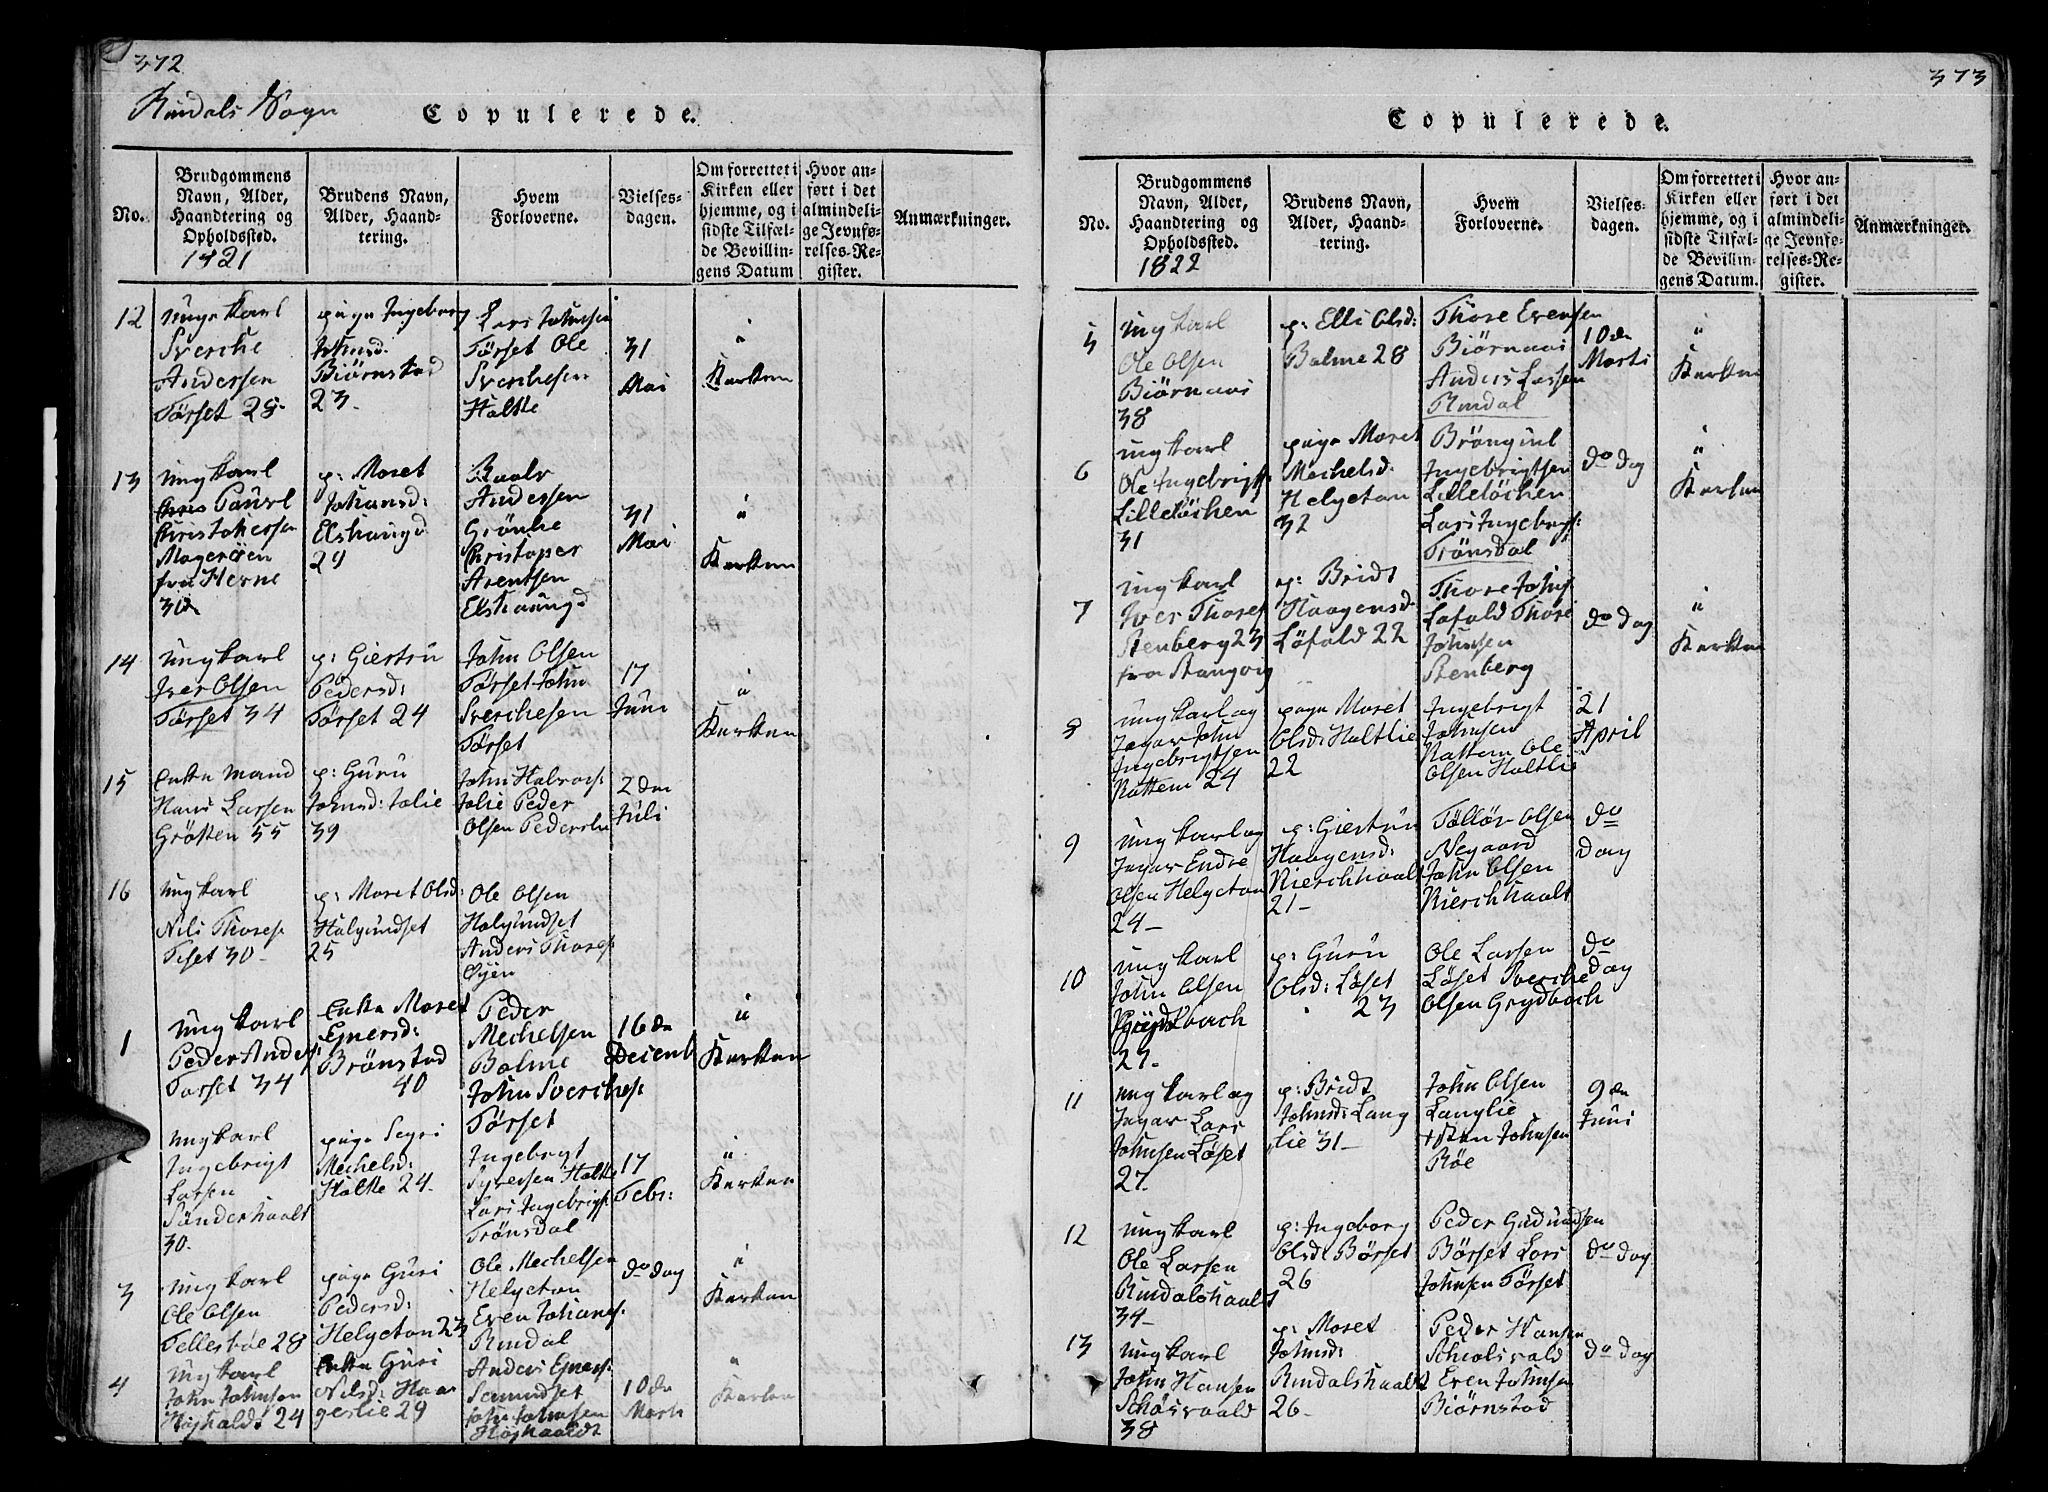 372
Rindals Sogn
Copulerede.
No.
Brudgommens Navn, Alder, Haandtering og Opholdssted.
1821
Brudens Navn, Alder, Haandtering.
Hvem Forloverne.
Vielses-dagen.
Om forrettet i Kirken eller hjemme, og i sidste Tilfælde Bevillingens Datum
Hvor anført i det almindelige Jevnførelses-Register.
Anmærkninger.
12
ungkarl
Sverche
Andersen
Tørset 28
pige Ingeborg
Johnsd.
Biørnstad
23
Lars Johnsen
Tørset Ole
Sverchesen
Holte
31
Mai
Kirken
13
ungkarl
Paul
Christophersen
Magerøien
fra Herne
30
p: Moret
Johansd:
Elshaugd
29
Andersen
Grønlie
Christoper
Arentsen
Elshaugd
31
Mai
Kirken
14
ungkarl
Iver Olsen
Tørset 34
p: Giertru
Pedersd:
Tørset 24
John Olsen
Tørset John
Sverchesen
Tørset
17
Juni
Kirken
15
Enke mand
Hans Larsen
Grøtten 55
p: Guru
Johnsd: Jolie
39
John Halvors:
Jolie Peder
Olsen Pederslie
2den
Juli
16
ungkarl
Nils Thores:
Tiset 30
p: Moret Olsd:
Halgundset
25
Ole Olsen
Halgundset
Anders Thores:
Øyen
1
ungkarl
Peder Anders:
Tørset 34
Enke Moret
Ejnersd:
Brønstad
40
Peder
Mechelsen
Bolme
John Sverches:
Tørset
16de
Decemb
Kirken
2
ungkarl
Ingebrigt
Larsen
Sønderhaalt
30.
pige Segri
Mechelsd:
Holte 24
Ingebrigt
Syversen Holte
Lars Ingebrigs:
Trønsdal
17
Febr:
Kirken
3
ungkarl
Ole Olsen
Tellesbøe 28
pige Guri
Pedersd:
Helgeton 23
Ole Mechelsen
Helgeton
Even Johanes:
Rindal
do dag
Kirken
4
ungkarl
John Johnsen
Højhaldt 24
Enke Guri
Nilsd: Haa
geslie 29
Anders Ejners:
Semundset
John Johnsen
Højhaaldt
10de
Marts
Kirken
373
Copulerede.
No.
Brudgommens Navn, Alder, Haandtering og Opholdssted.
1822
Brudens Navn, Alder, Haandtering.
Hvem Forloverne.
Vielses-dagen.
Om forrettet i Kirken eller hjemme, og i sidste Tilfælde Bevillingens Datum.
Hvor anført i det almindelige Jevnførelses-Register.
Anmærkninger.
5
ungkarl
Ole Olsen
Biørnaas
38
p: Elli Olsd:
Bolme 28
Thore Evensen
Biørnaas
Anders Larsen
Rindal
10de
Marts
Kirken
6
ungkarl
Ole Ingebrigts:
Lilleløchen
31
pige Moret
Mechelsd.
Helgeton
32
Ingebrigtsen
Lilleløchen
Lars Ingebrigs:
Trønsdal
do dag
Kirken
7
ungkarl
Iver Thores:
Stenberg 23
fra Stangvig
p: Bridt
Haagensd.
Løfald 22
Thore Johns:
Løfald Thore
Johnsen
Stenberg
do dag
Kirken
8
ungkarl og
Jæger John
Ingebrigtsen
Nattem 24
pige Moret
Olsd: Holtlie
22
Ingebrigt
Johnsen
Nattem Ole
Olsen Holtlie
21
April
9
ungkarl og
Jæger Endre
Olsen Helgeton
24
p: Giertru
Haagensd:
Nierchhaalt
21
Tølløv Olsen
Negaard
John Olsen
Nierchhaalt
do
Dag
10
ungkarl
John Olsen
p: Guru
Olsd: Løset
23
Ole Larsen
Løset Sverche
Olsen Grydbach
do
dag
11
ungkarl og
Jæger Lars
Johnsen Løset
27
p: Bridt
Johnsd: Lang
lie 31
John Olsen
Langlie
Johnsen
Røe
9de
Juni
12
ungkarl
Ole Larsen
Rindalshaalt
34
p: Ingeborg
Olsd: Børset
26
Peder Gudmundsen
Børset Lars
Johnsen Tørset
do dag
13
ungkarl
John Hansen
Schølsvaald
38
p: Moret
Johnsd:
Rindalshaalt
26
Peder Hansen
Schølsvald
Even Johnsen
Biørnstad
do dag